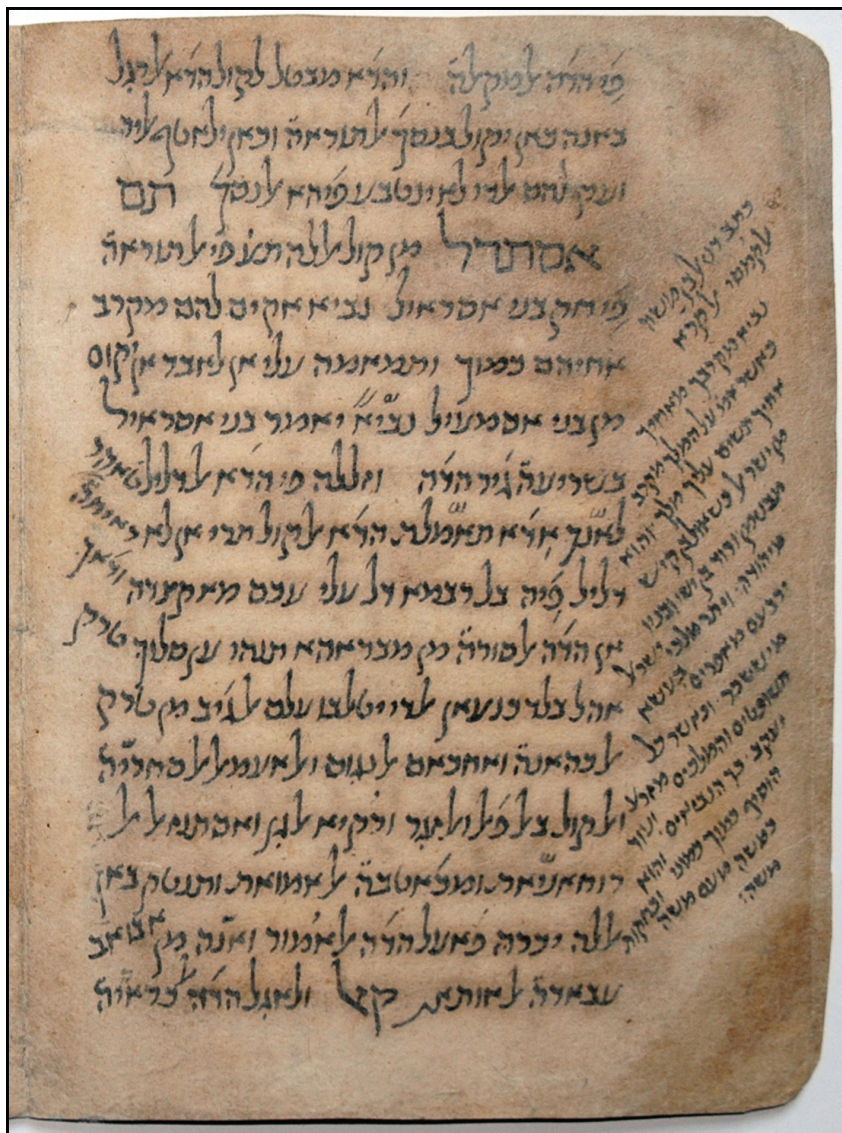 פי הדה אלמקאלה והדא מבטל לקול הדא אלרגל
באנה כאן יקול בנסך אלתוראה וכאן
להם אלדי לא ינטבע פיהא אלנסך תם
אסתדל מן קול אללה תע׳ פי אלתוראה
פי חק בני אסראיל נביא אקים להם מקרב
אחיהם כמוך ותמאמה עלי אן לאבד אן יקום
מן בני אסמעיל נביא יאמר בני אסראיל
בשריעה גיר הדה ואללה פי הדא אלדליל טאהר
לאנך אדא תאמלת הדא אלקול תרי אן לא
דליל פיה בל רבמא דל עלי עכס מא קצדה
אן הדה אלסורה מן מבדאהא תנהו ען סלוך טרק
אהל בלד כנעאן אלדי יטלבו עלם אלגיב מן טרק
אלכהאנה ואחכאם אלנגום ואלאעמאל אלסחריה
ואלקול באלפאל ואלזגר ורקיא אלגן ואסתנזאל אל
רוחאניאת ומכאטבה אלאמואת ותנטק באן
אללה יכרה פאעל הדה אלאמור ואנה מן אבואב
עבאדה אלאותאן קאל ולאגל הדה אלכראיה
נביא מקרבך מאחיך
כאשר אמ׳ על המלך מקרב
אחיך תשים עליך מלך והוא
מן ישר׳ כשאול בן קיש
מבנימן ודוד בן ישי ובניו
מיהודה ויתר מלכי ישר׳
ירבעם מאפרים בעשא
מיששכר וכאשר כל
השופטים והמלכים מזרע
יעקב כך הנביאים ועוד
הוסיף כמוך כמוני והוא
כמשה מעם משה
משה׃